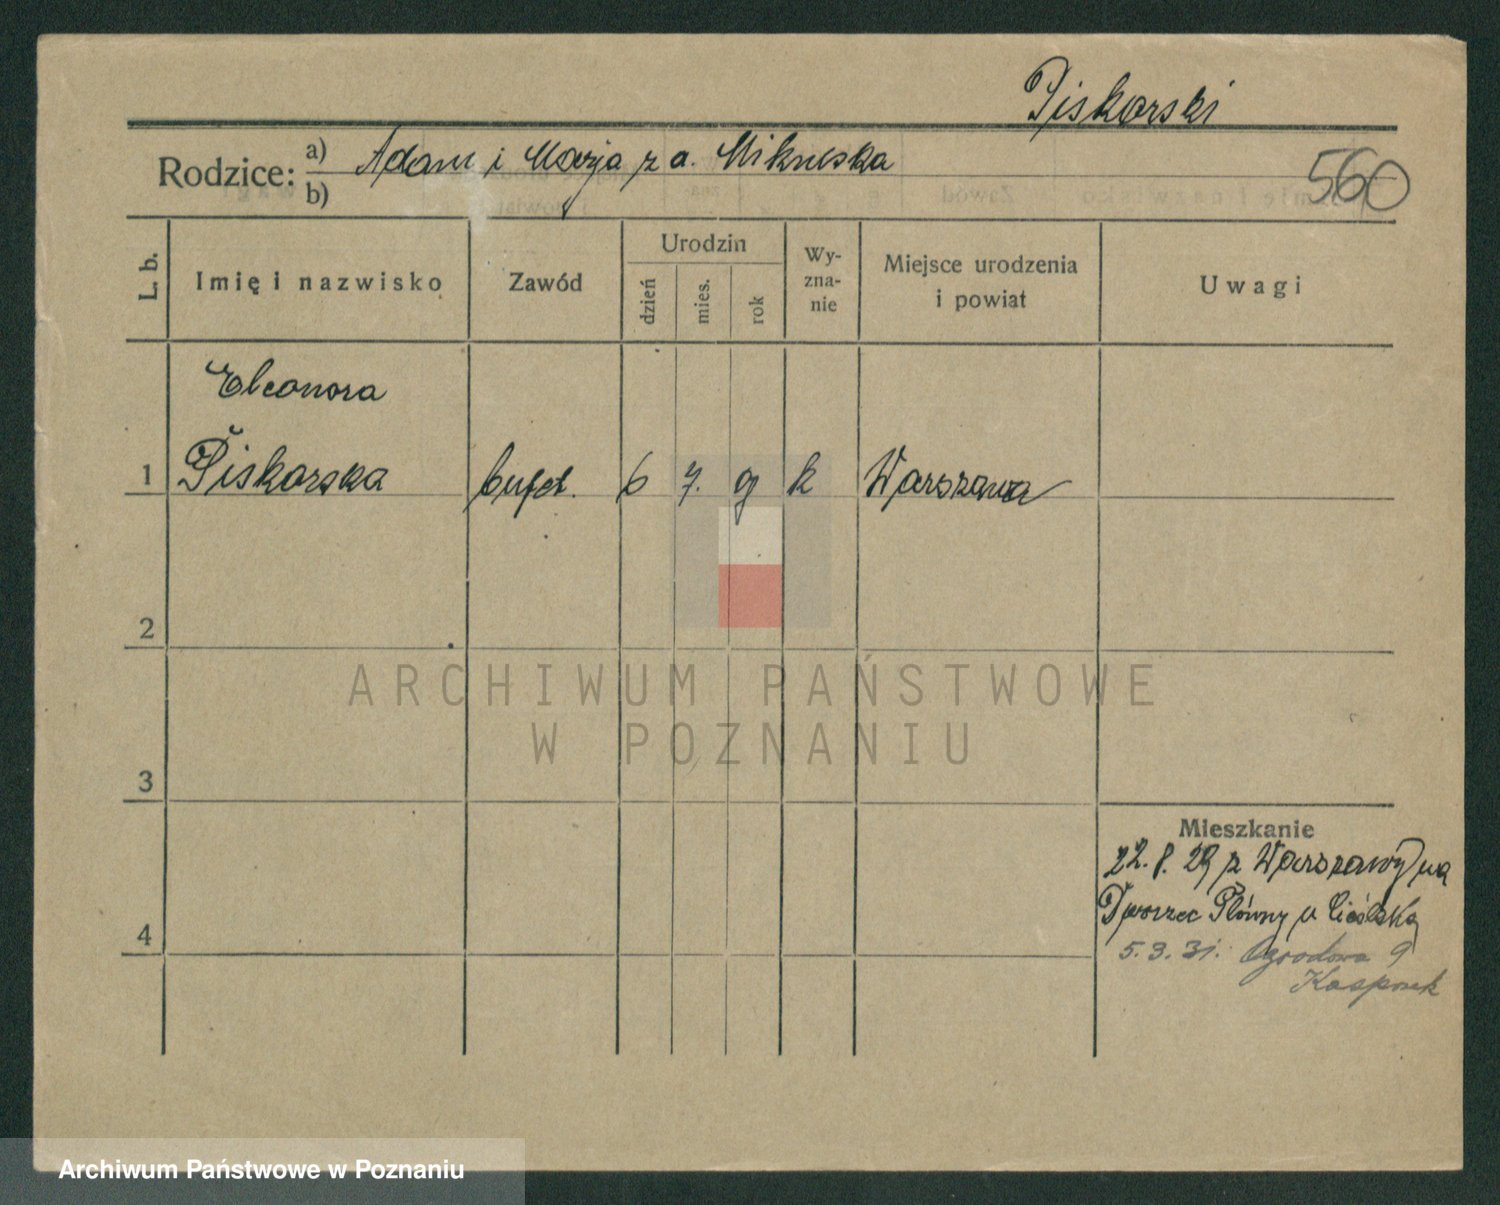 Piskorski
Rodzice: a) Adam i Marja z d. Mikulska
b)
560
L. b.
Imię i nazwisko
Zawód
Urodzin
dzień
mies.
rok
Wy-
zna-
nie
Miejsce urodzenia
i powiat
Uwagi
Eleonora
1 Piskorska bufet. 6 7. 9 k Warszawa
2
3
4
ARCHIWUM PAŃSTWOWE
W POZNANIU
Mieszkanie
22.8.29 z Warszawy na
Dworzec Główny u Cieślską
5.3.31. Ogrodowa 9
Kasprzak
Archiwum Państwowe w Poznaniu